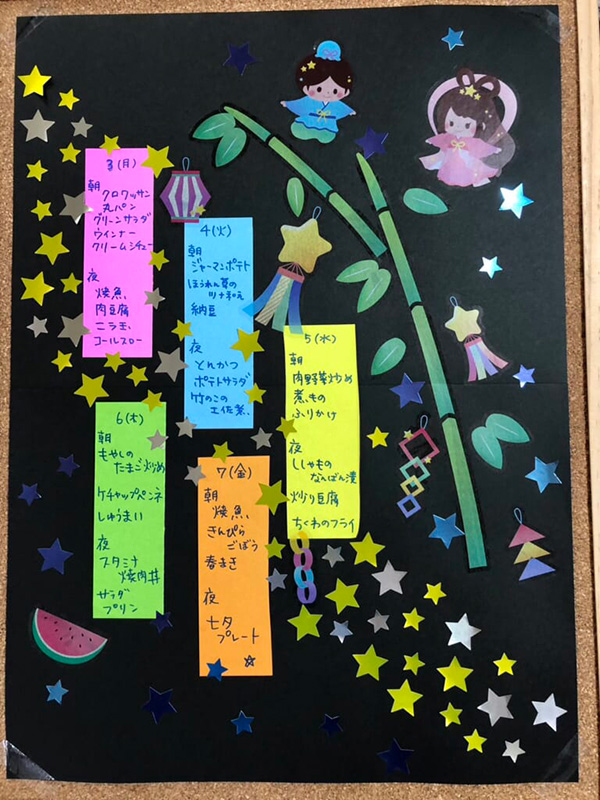 3(月)
朝
クロワッサン
丸パン
グリーンサラダ
ウインナー
クリームシチュー
夜
焼魚
肉豆腐
ニラ玉
コールスロー
4(火)
朝
ジャーマンポテト
ほうれん草の
ツナ和え
納豆
夜
とんかつ
ポテトサラダ
竹のこの
土佐煮
5(水)
朝
肉野菜炒め
煮もの
ふりかけ
夜
ししゃもの
なんばん漬
炒り豆腐
ちくわのフライ
6(木)
朝
もやしの
たまご炒め
ケチャップペンネ
しゅうまい
夜
スタミナ
焼肉丼
サラダ
プリン
7(金)
朝
焼魚
きんぴら
ごぼう
春まき
夜
七夕
プレート